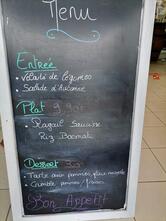 Menu
Entrée
• Velouté de légumes
• Salade d'Automne
Plat 9.90€
• Rougail Saucisse
Riz Basmati
Dessert
• Tarte aux pommes
• Crumble pommes / fraises
Bon Appétit